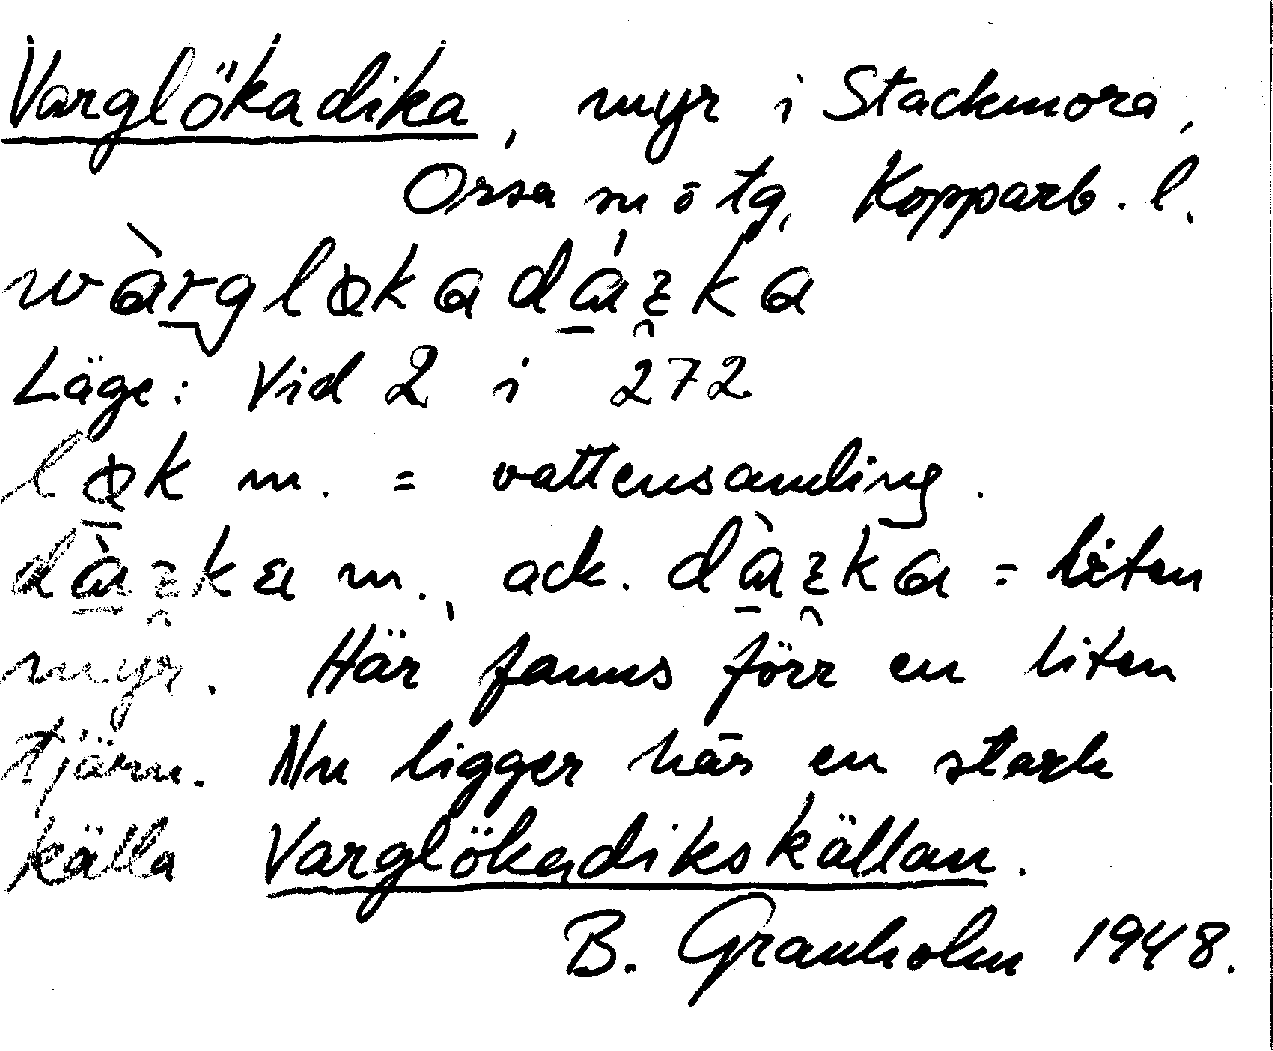 Varglökadika, myr i Stackmora,
Orsa sn ö tg, Kopparb. l.
Läge: Vid 2 i 272
m. = vattensamling.
m., ack. = liten
myr. Här fanns förr en liten
tjärn. Nu ligger här en stark
källa Varglökadikskällan.
B. Granholm 1948.